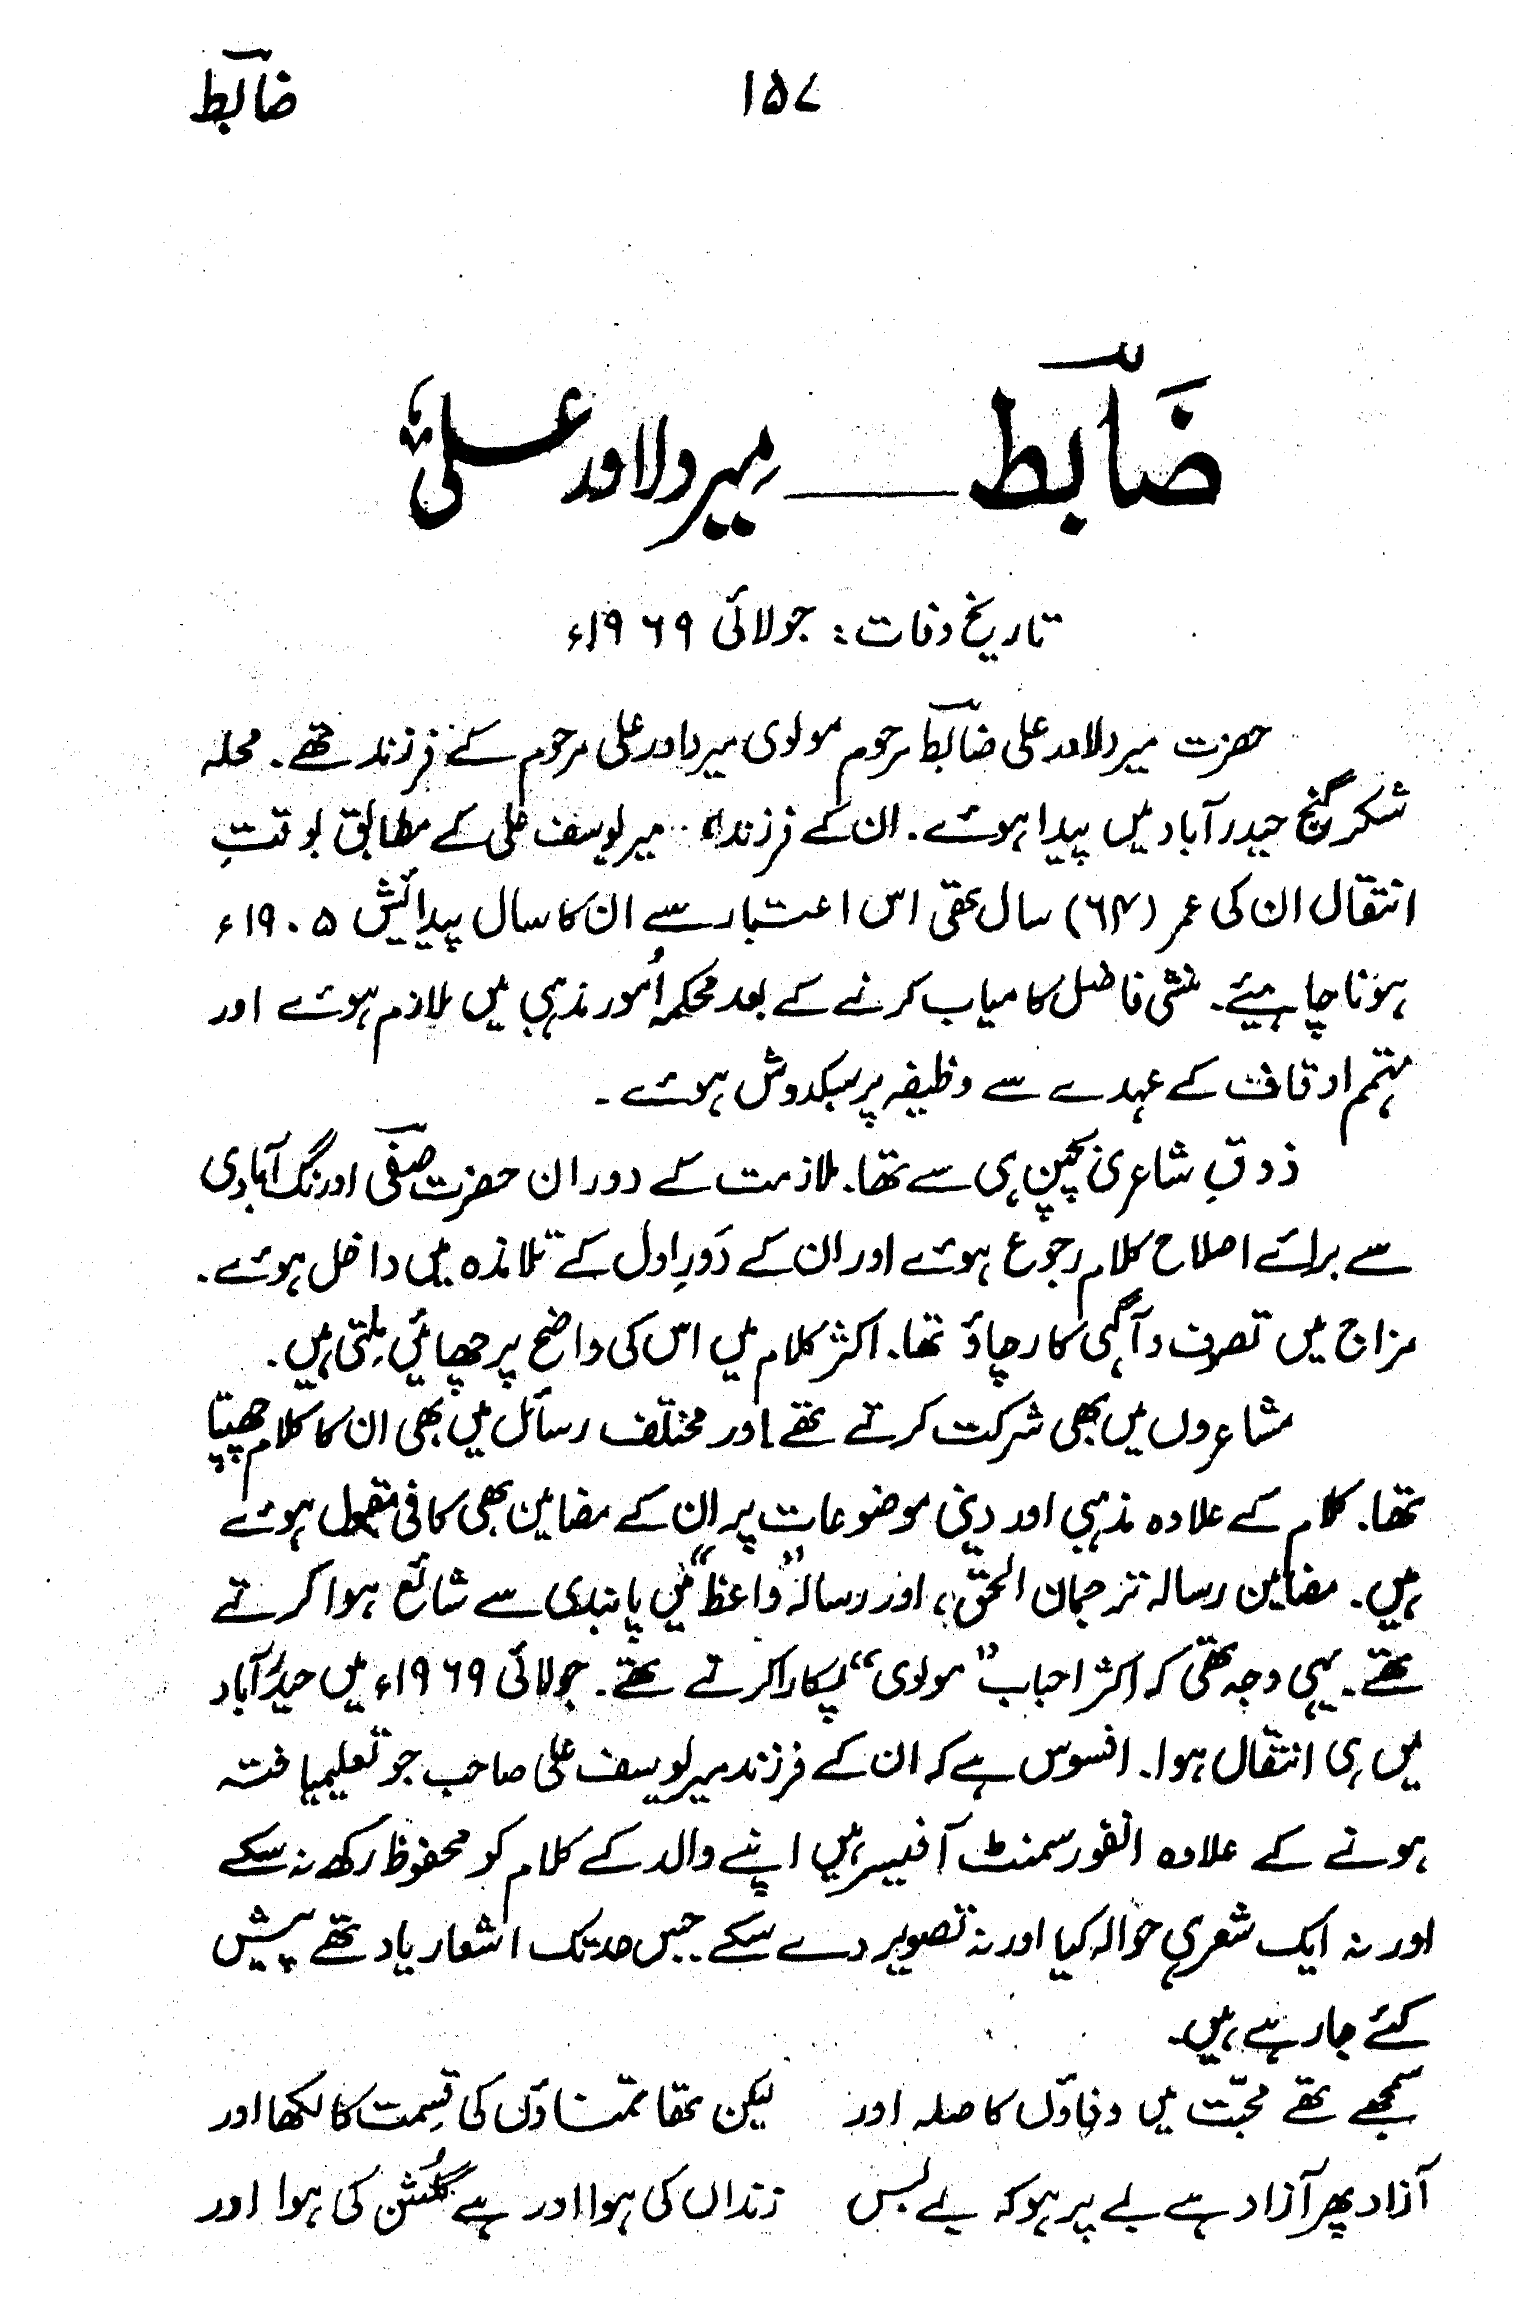 ۱۵۷ ضابط
ضابط ـــــ میر دلاور علی
تاریخ وفات: جولائی ۱۹۶۹ء
حضرت میر دلاور علی ضابط مرحوم مولوی میر داور علی مرحوم کے فرزند تھے۔ محلہ
شکر گنج حیدرآباد میں پیدا ہوئے۔ ان کے فرزند میر یوسف علی کے مطابق بوقتِ
انتقال ان کی عمر (۶۴) سال تھی اس اعتبار سے ان کا سال پیدائش ۱۹۰۵ء
ہونا چاہیئے۔ منشی فاضل کامیاب کرنے کے بعد محکمہ اُمور مذہبی میں ملازم ہوئے اور
مہتمم اوقاف کے عہدے سے وظیفہ پر سبکدوش ہوئے۔
ذوقِ شاعری بچپن ہی سے تھا۔ ملازمت کے دوران حضرت صفی اورنگ آبادی
سے برائے اصلاح کلام رجوع ہوئے اور ان کے دَورِ اول کے تلامذہ میں داخل ہوئے۔
مزاج میں تصوف و آگہی کا رچاؤ تھا۔ اکثر کلام میں اس کی واضح پرچھائیں مِلتی ہیں۔
مشاعروں میں بھی شرکت کرتے تھے اور مختلف رسائل میں بھی ان کا کلام چھپتا
تھا۔ کلام کے علاوہ مذہبی اور دینی موضوعات پر ان کے مضامین بھی کافی مقبول ہوئے
ہیں۔ مضامین رسالہ ترجمان الحق، اور رسالہ "واعظ" میں پابندی سے شائع ہوا کرتے
تھے۔ یہی وجہ تھی کہ اکثر احباب "مولوی" پکارا کرتے تھے۔ جولائی ۱۹۶۹ء میں حیدرآباد
میں ہی انتقال ہوا۔ افسوس ہے کہ ان کے فرزند میر یوسف علی صاحب جو تعلیمیافتہ
ہونے کے علاوہ انفورسمنٹ آفیسر ہیں اپنے والد کے کلام کو محفوظ رکھ نہ سکے
اور نہ ایک شعر ہی حوالہ کیا اور نہ تصویر دے سکے۔ جس حد تک اشعار یاد تھے پیش
کئے جا رہے ہیں۔
سمجھے تھے محبّت میں وفاؤں کا صلہ اور لیکن تھا تمنّاؤں کی قِسمت کا لکھا اور
آزاد پھر آزاد ہے بے پر ہو کہ بے بس زنداں کی ہوا اور ہے گلشن کی ہوا اور